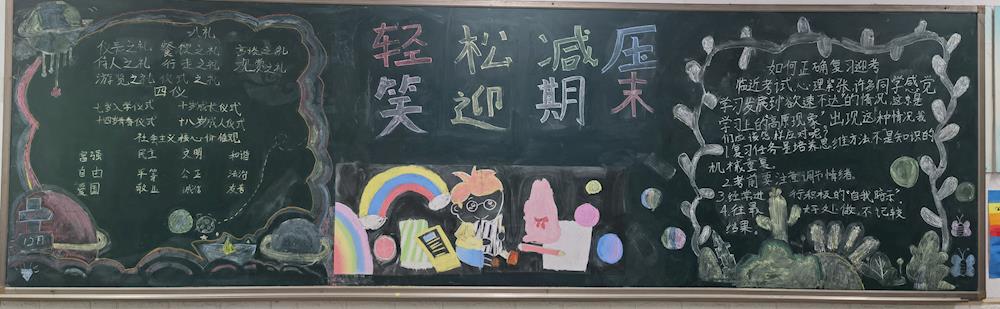 八礼
仪表之礼 餐饮之礼 言谈之礼
待人之礼 行走之礼 观赏之礼
游览之礼 仪式之礼
四仪
七岁入学仪式 十岁成长仪式
十四岁青春仪式 十八岁成人仪式
社会主义核心价值观
富强 民主 文明 和谐
自由 平等 公正 法治
爱国 敬业 诚信 友善
轻松减压
笑迎期末
如何正确复习迎考
临近考试,心理紧张,许多同学感觉
学习发展到"欲速不达"的情况,这就是
学习上的"高原现象",出现这种情况我
们应该怎样应对呢?
1.复习任务是培养思维方法不是知识的
机械重复。
2.考前要注重调节情绪。
3.经常进行积极的"自我暗示"。
4.往最好处做,不记较
结果。